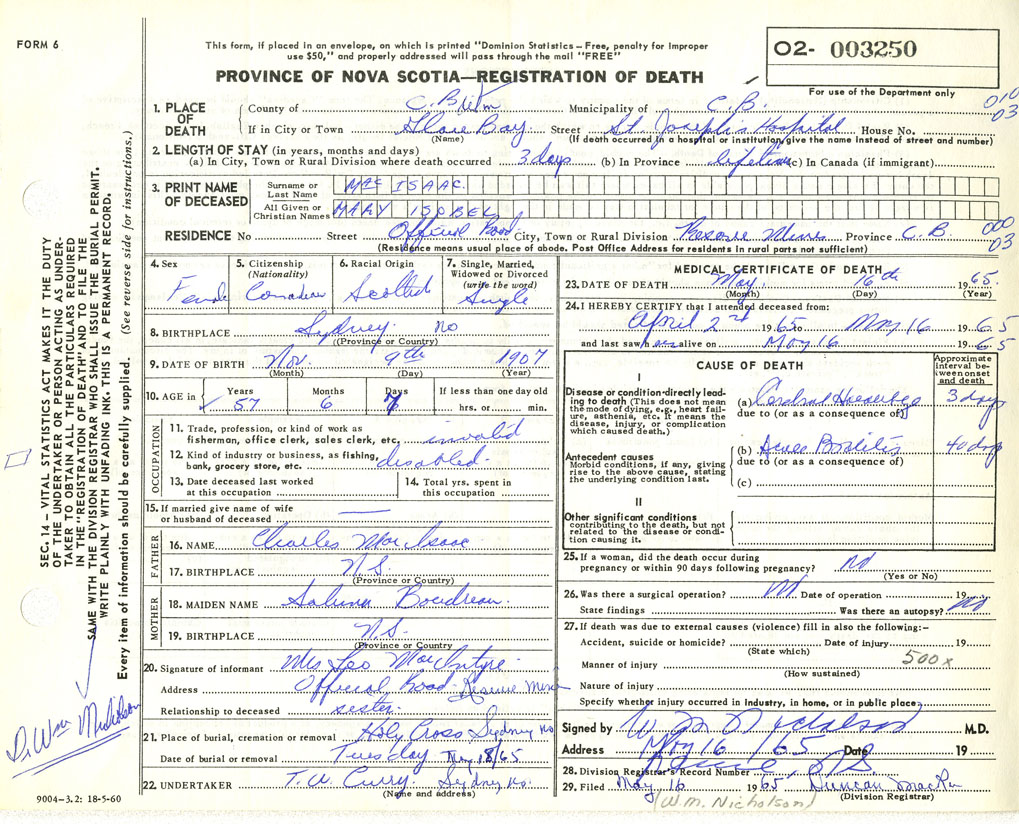 FORM 6
This form, if placed in an envelope, on which is printed "Dominion Statistics – Free, penalty for improper
use $50," and properly addressed will pass through the mail "FREE"
O2- 003250
PROVINCE OF NOVA SCOTIA—REGISTRATION OF DEATH
For use of the Department only
010
03
1. PLACE OF DEATH
County of C.B. Municipality of C.B.
If in City or Town Glace Bay Street St. Joseph's Hospital House No.
(Name) (If death occurred in a hospital or institution, give the name instead of street and number)
2. LENGTH OF STAY (in years, months and days)
(a) In City, Town or Rural Division where death occurred 3 days (b) In Province lifetime (c) In Canada (if immigrant)
3. PRINT NAME OF DECEASED
Surname or Last Name MacISAAC
All Given or Christian Names MARY ISOBEL
RESIDENCE No Street Official Road City, Town or Rural Division Reserve Mines Province C.B.
000
03
(Residence means usual place of abode. Post Office Address for residents in rural parts not sufficient)
4. Sex
Female
5. Citizenship
(Nationality)
Canadian
6. Racial Origin
Scottish
7. Single, Married,
Widowed or Divorced
(write the word)
Single
8. BIRTHPLACE Sydney No
(Province or Country)
9. DATE OF BIRTH Nov. 9th 1907
(Month) (Day) (Year)
10. AGE in
Years Months Days If less than one day old
57 6 hrs. or min.
OCCUPATION
11. Trade, profession, or kind of work as
fisherman, office clerk, sales clerk, etc. invalid
12. Kind of industry or business, as fishing,
bank, grocery store, etc. disabled.
13. Date deceased last worked
at this occupation
14. Total yrs. spent in
this occupation
15. If married give name of wife
or husband of deceased —
FATHER
16. NAME Charles MacIsaac
17. BIRTHPLACE N.S.
(Province or Country)
MOTHER
18. MAIDEN NAME Boudreau
19. BIRTHPLACE N.S.
(Province or Country)
20. Signature of informant Mrs Leo MacIntyre
Address Official Road Reserve Mines
Relationship to deceased sister.
21. Place of burial, cremation or removal Holy Cross Sydney No
Date of burial or removal Tuesday May 18/65
22. UNDERTAKER T.W. Curry. Sydney No.
(Name and address)
MEDICAL CERTIFICATE OF DEATH
23. DATE OF DEATH May 16th 1965.
(Month) (Day) (Year)
24. I HEREBY CERTIFY that I attended deceased from:
April 2nd 1965 to May 16 1965
and last saw her alive on May 16 1965
CAUSE OF DEATH
Approximate interval between onset and death
I
Disease or condition directly leading to death (This does not mean
the mode of dying, e.g., heart failure, asthenia, etc. It means the
disease, injury, or complication
which caused death.)
(a) Cerebral 3 days
due to (or as a consequence of)
Antecedent causes
Morbid conditions, if any, giving
rise to the above cause, stating
the underlying condition last.
(b) 40 days
due to (or as a consequence of)
(c)
II
Other significant conditions
contributing to the death, but not
related to the disease or condition causing it.
25. If a woman, did the death occur during
pregnancy or within 90 days following pregnancy? No
(Yes or No)
26. Was there a surgical operation? No Date of operation 19
State findings Was there an autopsy? No
27. If death was due to external causes (violence) fill in also the following:–
Accident, suicide or homicide? Date of injury 19
(State which)
500x
Manner of injury
(How sustained)
Nature of injury
Specify whether injury occurred in industry, in home, or in public place
Signed by W M Nicholson M.D.
Address May 16/65 Date 19
28. Division Registrar's Record Number
29. Filed May 16 1965 Duncan
(Division Registrar)
(W.M. Nicholson)
9004-3.2: 18-5-60
SEC. 14 – VITAL STATISTICS ACT MAKES IT THE DUTY
OF THE UNDERTAKER OR PERSON ACTING AS UNDERTAKER TO OBTAIN ALL THE PARTICULARS REQUIRED
IN THE "REGISTRATION OF DEATH" AND TO FILE THE
SAME WITH THE DIVISION REGISTRAR WHO SHALL ISSUE THE BURIAL PERMIT.
WRITE PLAINLY WITH UNFADING INK. THIS IS A PERMANENT RECORD.
Every item of information should be carefully supplied. (See reverse side for instructions.)
Dr Wm Nicholson